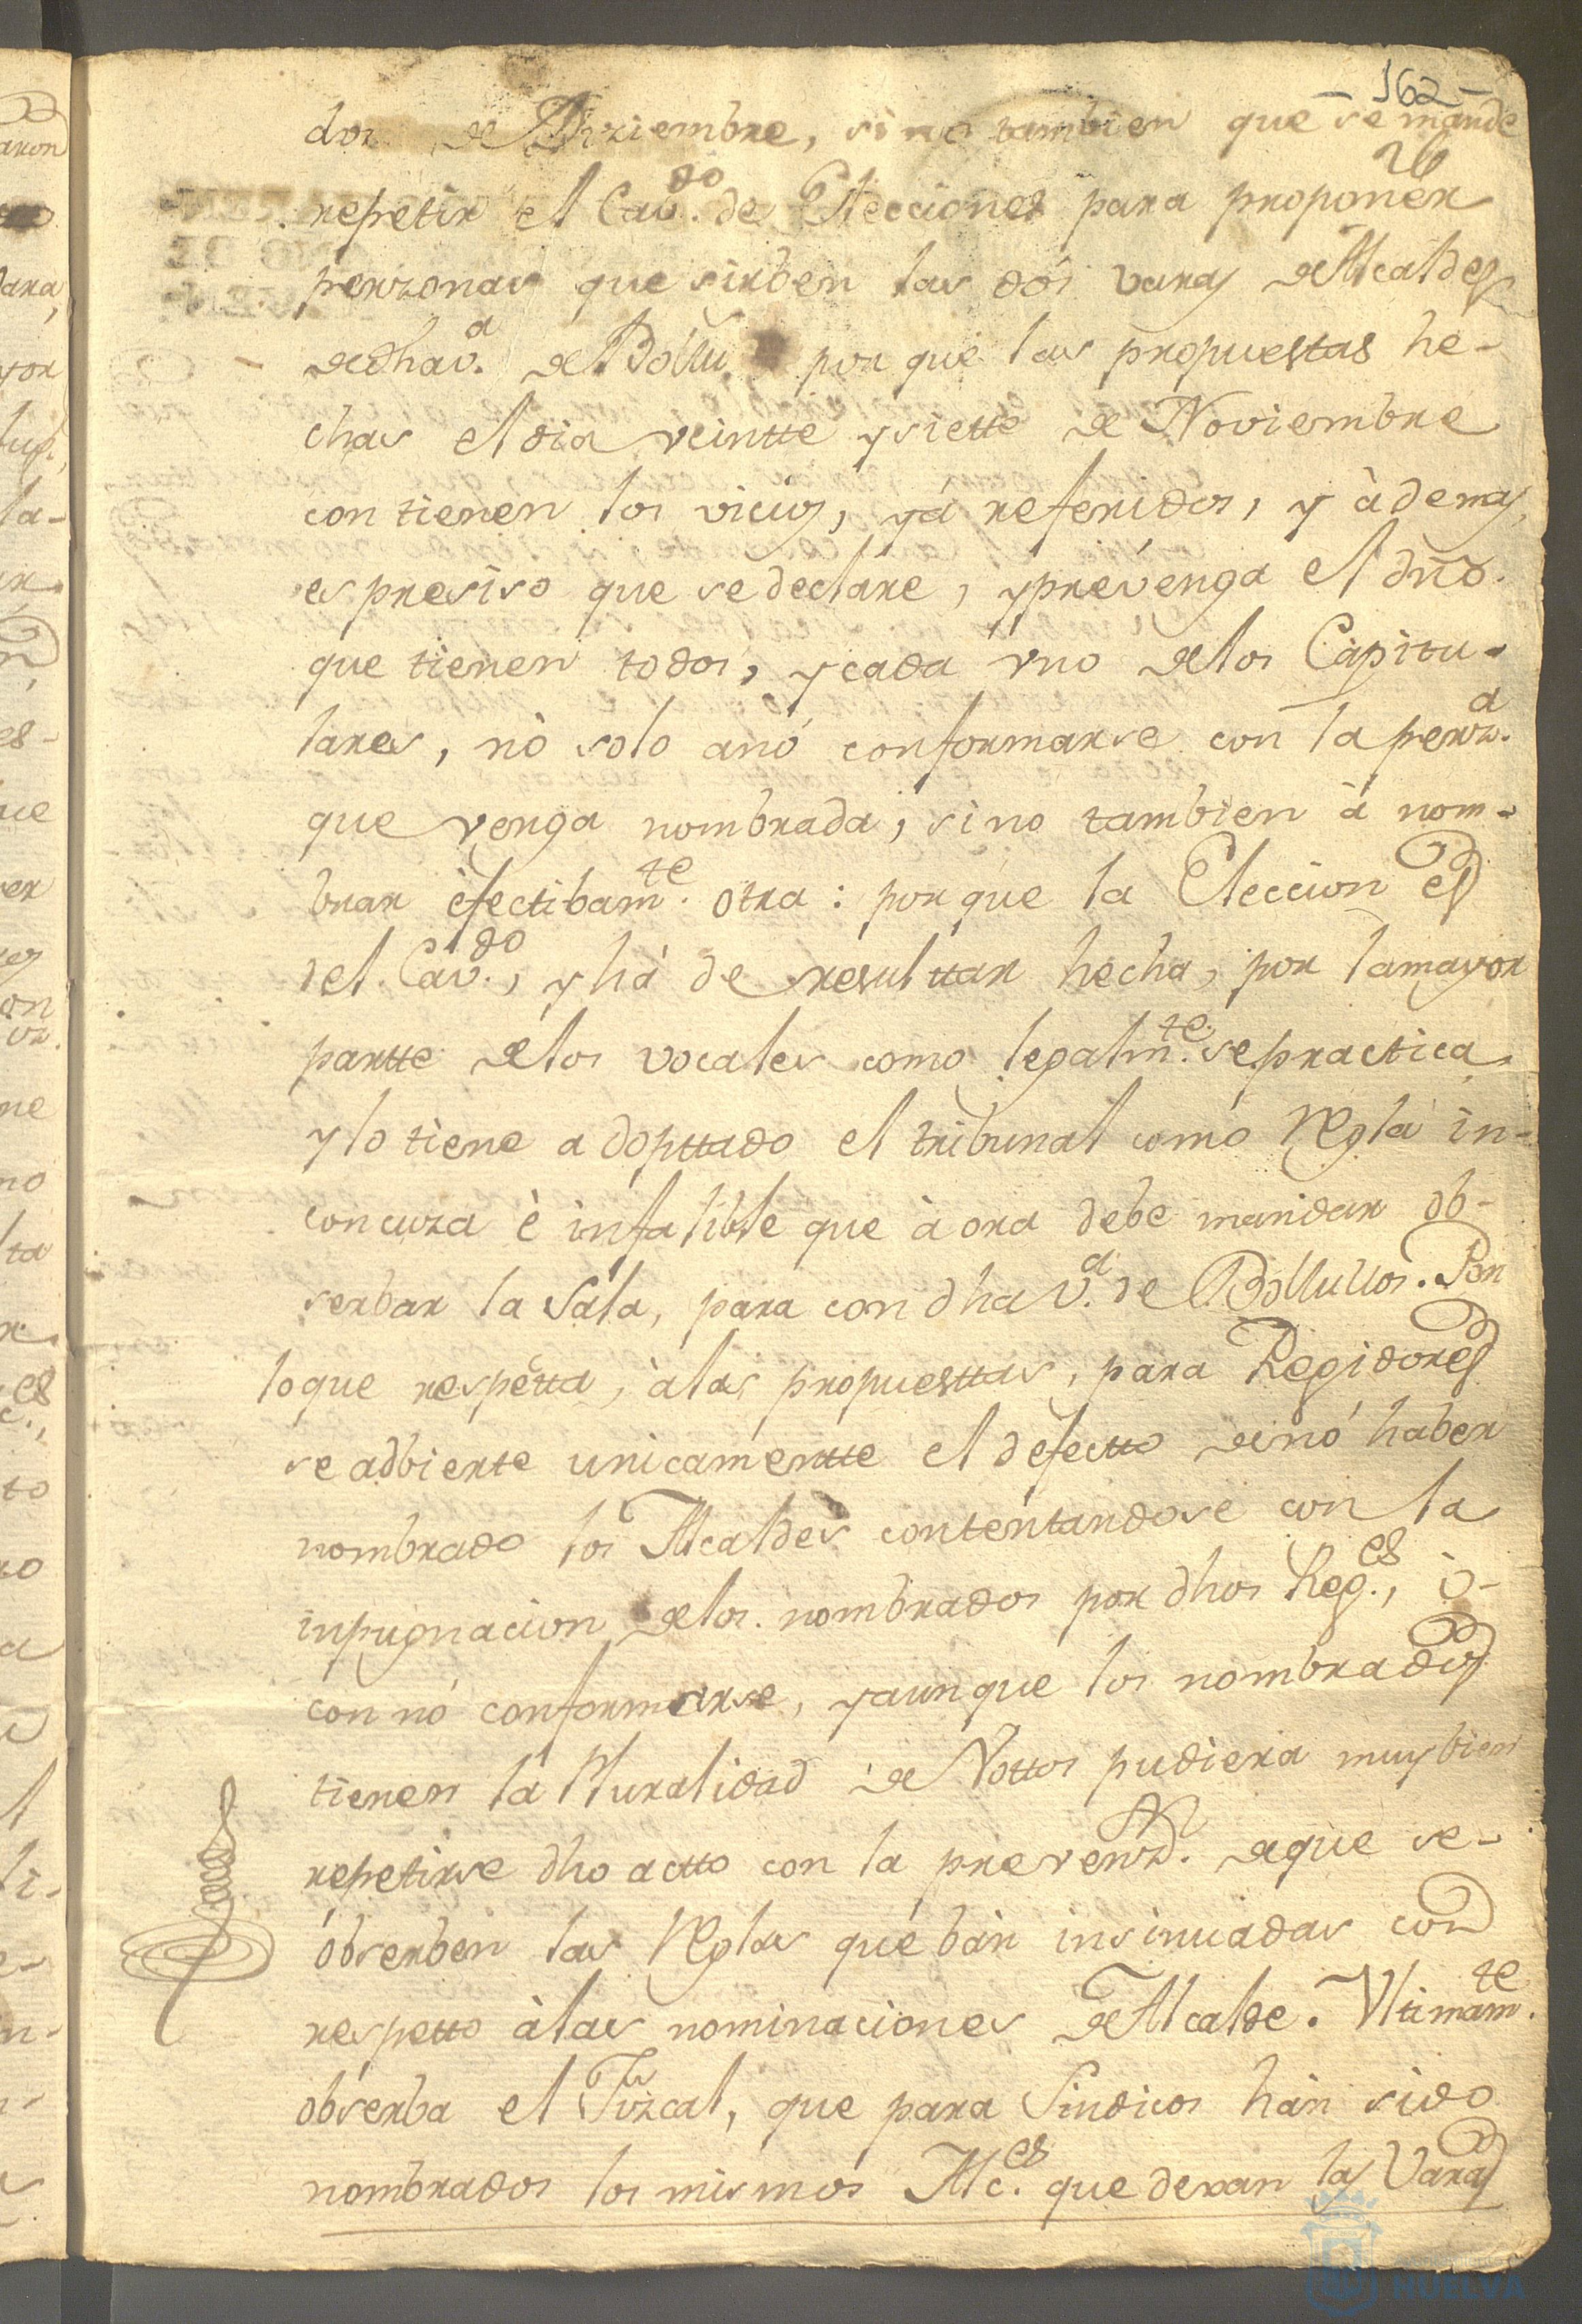 -162-
26
dos de Diziembre, sino tambien que se mande
repetir el Cav.do de Elecciones para proponer
perzonas que sirben las dos varas de Alcaldes
de dha v.a de Bollu. por que las propuestas he-
chas el dia veintte y siette de Noviembre
contienen los vicios, yá referidos, y àdemas
es presiso que se declare, y prevenga el dño.
que tienen todos, y cada vno de los Capitu-
lares, nò solo anó conformarse con la perz.a
que venga nombrada, sino tambien à nom-
brar èfectibam.te otra: porque la Eleccion es
del Cav.do, y hà de resulttar hecha, por la mayor
partte de los vocales como legalm.te se practica,
y lo tiene adopttado el tribunal como Regla in-
concuza è infalible que àora debe mandar ob-
serbar la Sala, para con dha v.a de Bollullos. Por
lo que respetta, àlas propuesttas, para Regidores
se adbierte unicamentte el defectto de nó haber
nombrado los Alcaldes contentandose con la
inpugnacion de los nombrados por dhos Reg.es, ò
con nó conformarse, y aunque los nombrados
tienen la Pluralidad de Vottos pudiera muy bien
repetirse dho actto con la prevenz.on de que se
obserben las Reglas que bàn insinuadas con
respetto àlas nominaciones de Alcalde. Vltimam.te
obserba el Fizcal, que para Sindicos hàn sido
nombrados los mismos Alc.es que dexan las Varas
HUELVA